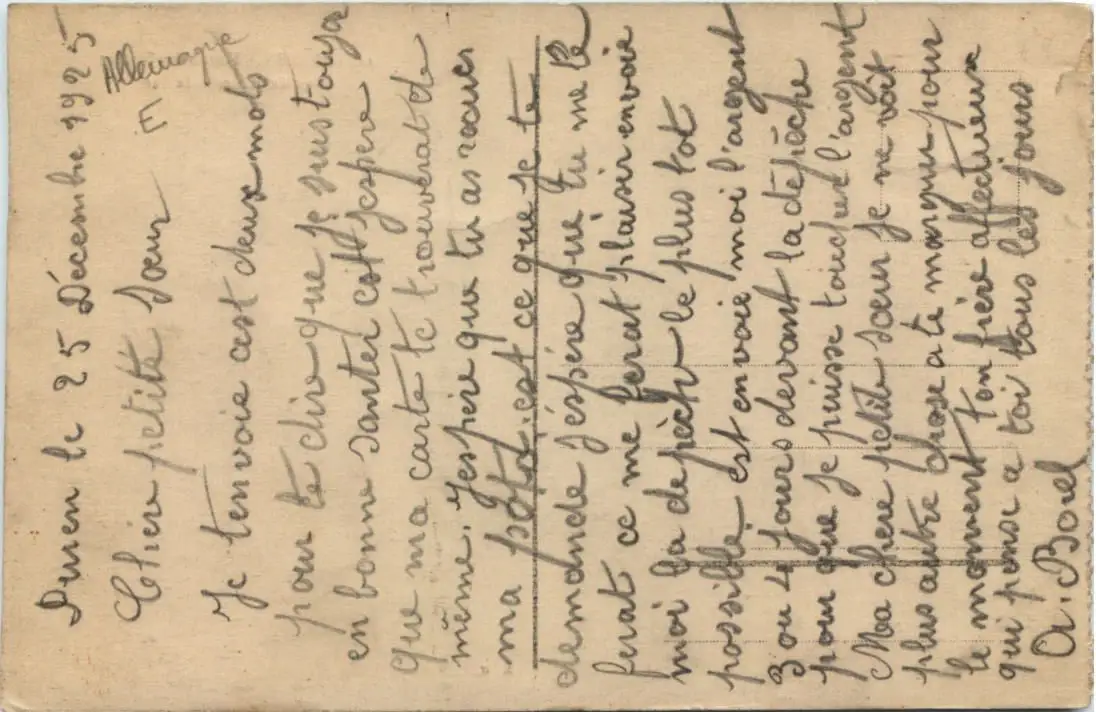 Duren le 25 Décembre 1925
Allemagne
E
Chère petite Sœur
Je tenvoie cest deux mots
pour te dire que je suis toujor
en bonne santer est jespère
que ma carte te trouverat de
même. jespère que tu as recuer
ma est ce que je te
demande jéspére que tu me le
ferat ce me ferat plaisir envoie
moi la dépèche le plus tot
possible est envoie moi l'argent
3 ou 4 jours devant la dépèche
pour que je puisse toucher l'argent
Ma chère petite sœur je ne voit
plus autre chose a te marquer pour
le moment ton frère affectueux
qui pense a toi tous les jours
A. Borel